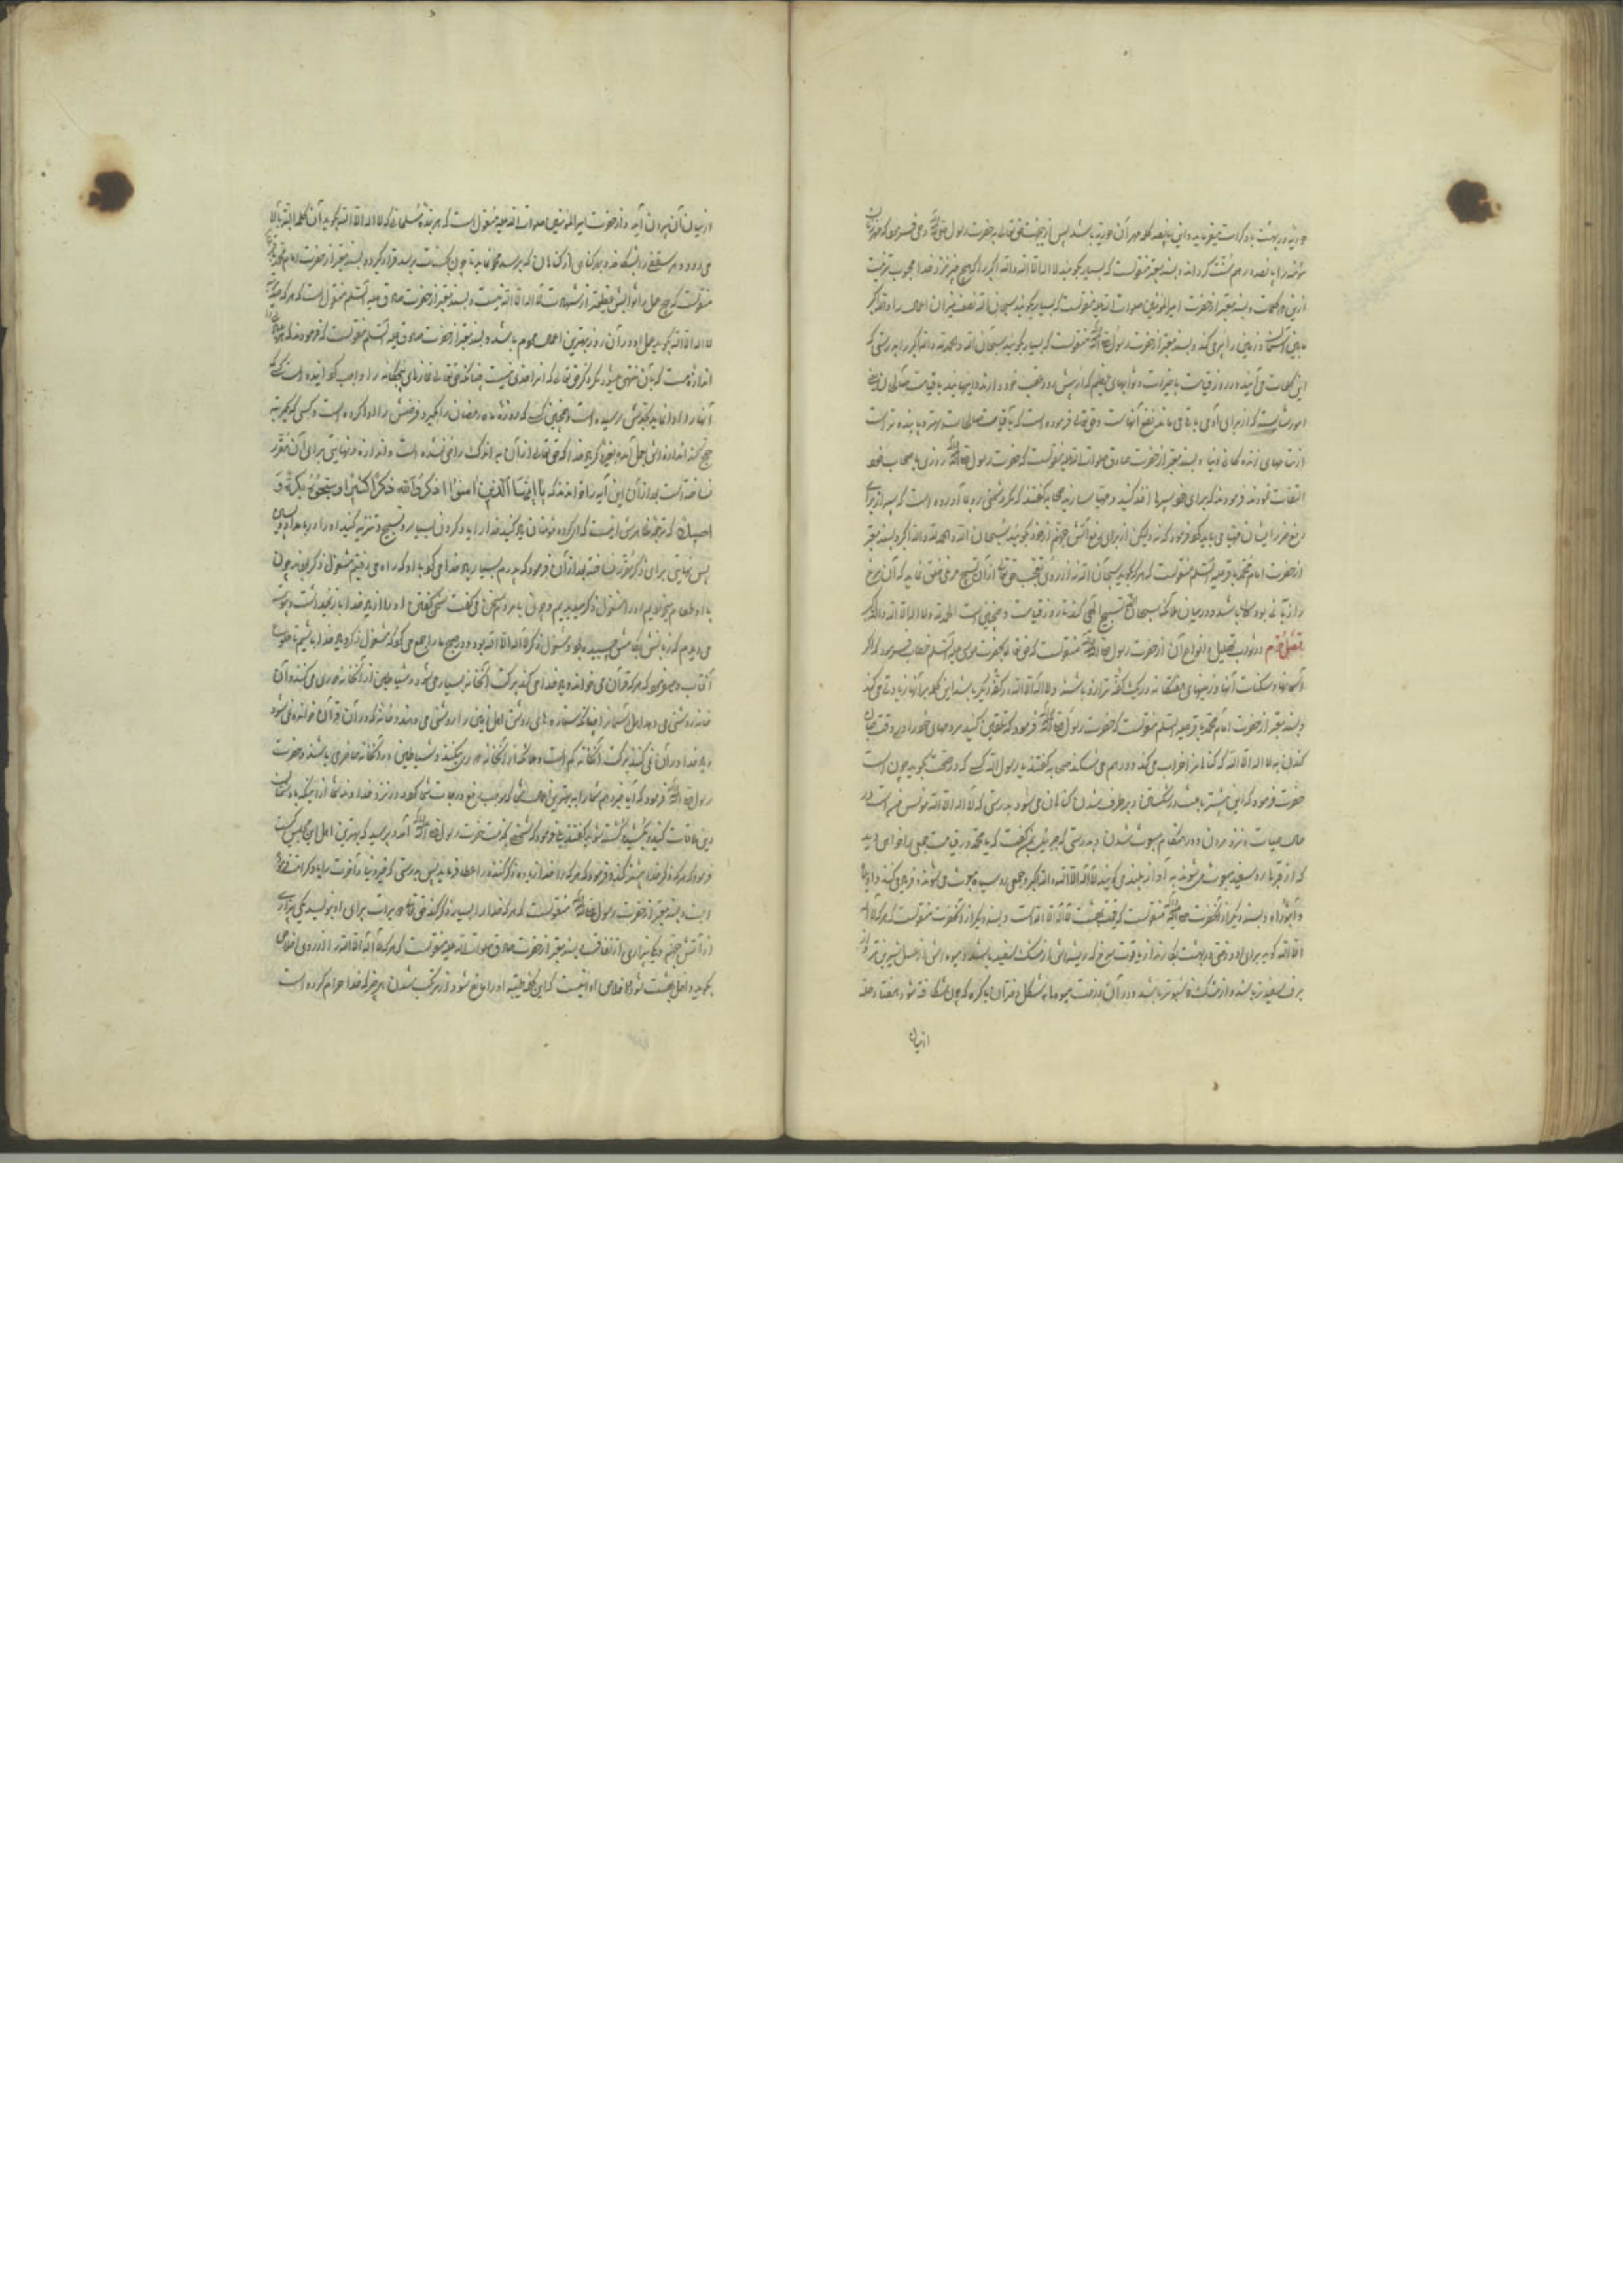 حوریه در بهشت باو کرامت میفرماید و این پانصد کلمه مهر آن حوریه باشد پس از این جهت حق تعالی بحضرت رسول وحی فرمود که مهر زنان
مؤمنه را پانصد درهم سنت گرداند و بسند معتبر منقولست که بسیار بگویید لا اله الا الله والله اکبر را که هیچ چیز نزد خدا محبوب تر نیست
ازین کلمات و بسند معتبر از حضرت امیرالمؤمنین صلوات الله علیه منقولست که بسیار بگویید سبحان الله نصف میزان اعمال را و الله اکبر
مابین آسمان و زمین را پر می کند و بسند معتبر از حضرت رسول منقولست که بسیار بگویید سبحان الله والحمد لله والله اکبر را بدرستی که
این کلمات می آیند در روز قیامت
امور شایسته که از برای آدمی باقی می ماند نفع آنهاست و حق تعالی فرموده است که باقیات صالحات بهتر و پاینده تر است
از نعمتهای زندگانی دنیا و بسند معتبر از حضرت صادق صلوات الله علیه منقولست که حضرت رسول روزی باصحاب خود
التفات نمودند فرمودند که برای خود سپرها اخذ کنید و مهیا سازید صحابه گفتند که مگر دشمنی رو بما آورده است که سپر از برای
دفع ضرر ایشان مهیا می باید کرد فرمود که نه ولیکن از برای دفع آتش جهنم از خود بگویید سبحان الله والحمد لله والله اکبر و بسند معتبر
از حضرت امام محمد باقر علیه السلام منقولست که هر که بگوید سبحان الله نه از روی تعجب حق تعالی از آن تسبیح مرغی خلق نماید که آن مرغ
را زبانی بوده باشد و در میان ملائکه سبحان تسبیح الهی کند تا روز قیامت و همچنین است الحمد لله ولا اله الا الله والله اکبر
فصل دوم در ثواب تهلیل و انواع آن از حضرت رسول منقولست که حق تعالی بحضرت موسی علیه السلام خطاب فرمود که اگر
آسمانها و سکنات آنها و زمینهای هفتگانه در یک کفه ترازو باشند و لا اله الا الله در کفه دیگر باشد این کلمه بر آنها زیادتی می کند
و بسند معتبر از حضرت امام محمد باقر علیه السلام منقولست که حضرت رسول فرمود که تلقین کنید مرده های خود را در وقت جان
کندن به لا اله الا الله که گناهان را خراب می کند و در هم می شکند صحابه گفتند یا رسول الله کسی که در صحت بگوید چون است
حضرت فرمود که این بیشتر باعث در شکستن و برطرف شدن گناهان می شود بدرستی که لا اله الا الله مونس مؤمن است در
حال حیات و نزد مردن و در هنگام مبعوث شدن و بدرستی که جبرئیل بمن گفت که یا محمد در قیامت جمعی را خواهی دید
که از قبرها رو سفید مبعوث می شوند و بآواز بلند می گویند لا اله الا الله والله اکبر و جمعی رو سیاه مبعوث می شوند و فریاد می کنند واویلاه
واثبوراه و بسند دیگر از آنحضرت منقولست که قیمت بهشت لا اله الا الله است و بسند دیگر از آنحضرت منقولست که هر که لا اله
الا الله گوید برای او درختی در بهشت بکارند از یاقوت سرخ که ریشه اش از مشک سفید باشد و میوه اش از عسل شیرین تر و از
برف سفیدتر باشد و از مشک خوشبوتر باشد و در آن درخت میوه ها به شکل پستان دختران باکره که چون شکافته شود هفتاد حله
از میان
از میان آن بیرون آید و از حضرت امیرالمؤمنین صلوات الله علیه منقول است که هر بنده مسلمانی که لا اله الا الله بگوید آن کلمه البته بالا
می رود و هر سقفی را بشکافد و بهر گناهی از گناهان که برسد محو نماید تا چون به حسنات برسد قرار گیرد و بسند معتبر از حضرت امام محمد باقر
منقولست که هیچ عمل را ثوابش عظیم تر از شهادت لا اله الا الله نیست و بسند معتبر از حضرت صادق علیه السلام منقول است که هر که صد مرتبه
لا اله الا الله بگوید عمل او در آن روز بهترین اعمال مردم باشد و بسند معتبر از حضرت صادق علیه السلام منقولست که فرمودند که هر چیز را
اندازه هست که بآن منتهی میشود مگر ذکر حق تعالی که آنرا حدی نیست چنانکه حق تعالی نمازهای پنجگانه را واجب گردانیده است کسی که
آنها را ادا نماید بحدش رسیده است و همچنین کسی که روزه ماه رمضان را بگیرد فرضش را ادا کرده است و کسی که یکمرتبه
حج کند اندازه اش بعمل آمده بغیر ذکر خدا که حق تعالی از آن به اندک راضی نشده است و اندازه و نهایتی برای آن مقرر
نساخته است بعد از آن این آیه را خواندند که یا ایها الذین امنوا اذکروا الله ذکرا کثیرا وسبحوه بکرة و
اصیلا که ترجمه ظاهرش اینست که ای گروه مؤمنان یاد کنید خدا را یاد کردن بسیار و تسبیح و تنزیه کنید او را در بامداد و پسین
پس نهایتی برای ذکر مقرر نساخته بعد از آن فرمود که پدرم بسیار یاد خدا می کرد با او که راه می رفتیم مشغول ذکر بود و چون
با او طعام میخوردیم او را مشغول ذکر میدیدیم و چون با مردم سخن می گفت سخن گفتن او را از یاد خدا باز نمیداشت و پیوسته
می دیدم که زبانش بکامش چسبیده بود و مشغول ذکر لا اله الا الله بود و در صبح ما را جمع می کرد که مشغول ذکر و یاد خدا باشیم تا طلوع
آفتاب و میفرمود که هر که قرآن می خواند و یاد خدا می کند برکت آنخانه بسیار می شود و شیاطین از آنخانه دوری می کنند و آن
خانه روشنی می دهد اهل آسمان را چنانکه ستاره ها روشنی اهل زمین را روشنی می دهند و خانه که در آن قرآن خوانده نمی شود
و یاد خدا در آن نمی کنند برکت آنخانه کم است و ملائکه از آنخانه دوری میکنند و شیاطین در آنخانه حاضر می باشند و حضرت
رسول فرمود که آیا خبر دهم شما را به بهترین اعمال شما که موجب رفع درجات شما گردد و نزد خداوند شما از اینکه با دشمنان
دین ملاقات کنید و بکشید و کشته شوید گفتند بلی فرمود که شخصی بخدمت حضرت رسول آمد و پرسید که بهترین اهل این مجلس کیست
فرمود که هر که ذکر خدا بیشتر کند و فرمود که هر که را خدا زبان ذکر کننده را عطا فرماید پس بدرستی که خیر دنیا و آخرت را باو کرامت فرموده
است و بسند معتبر از حضرت رسول منقولست که هر که خدا را بسیار ذکر کند حق تعالی دو برات برای او بنویسد یکی بیزاری
از آتش جهنم و یکی بیزاری از نفاق و بسند معتبر از حضرت صادق صلوات الله علیه منقولست که هر که لا اله الا الله را از روی اخلاص
بگوید داخل بهشت شود و اخلاص او آنست که این کلمه طیبه او را مانع شود از مرتکب شدن هر چیز که خدا حرام کرده است